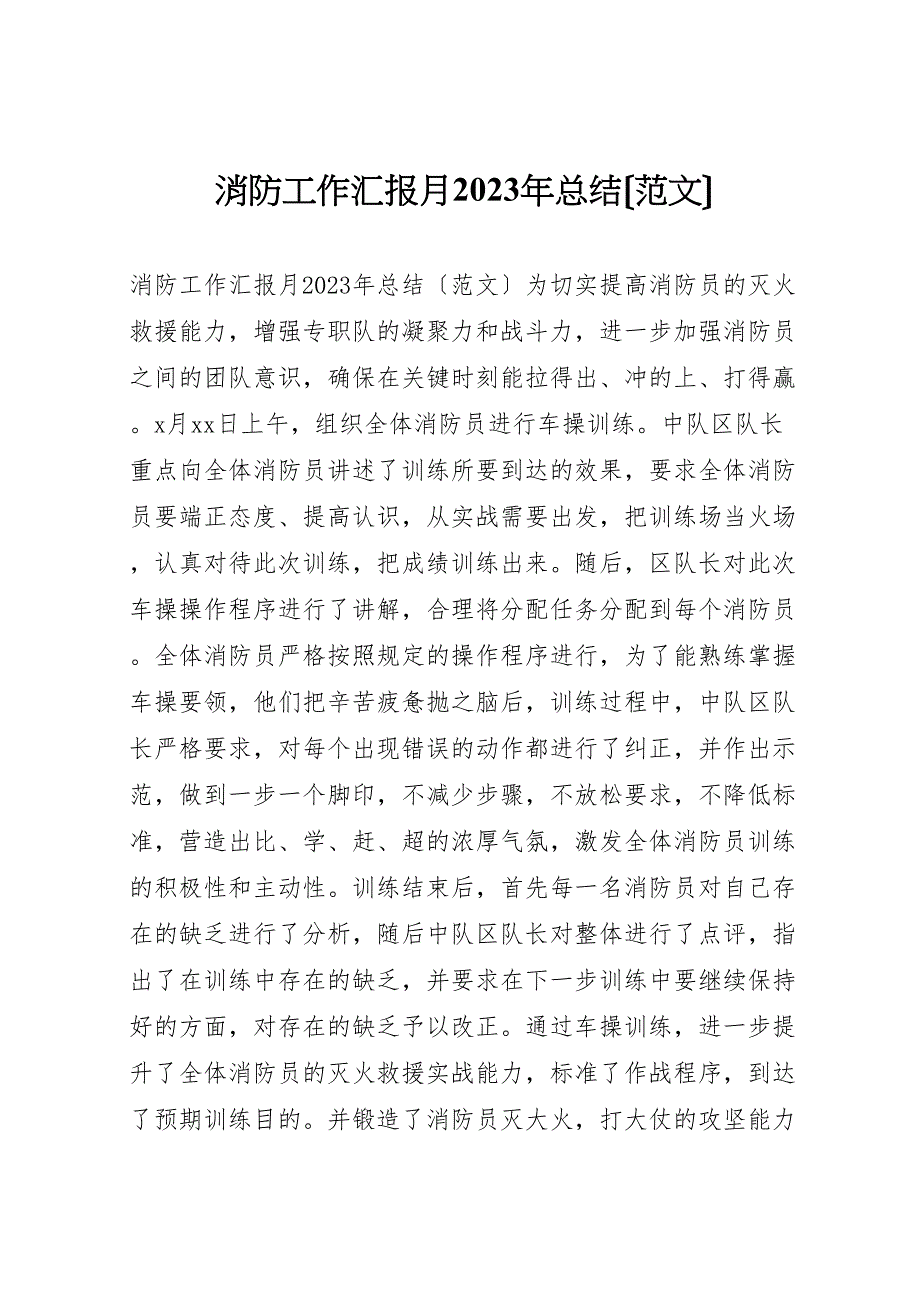 消防工作汇报月2023年总结[范文]
消防工作汇报月2023年总结〔范文〕为切实提高消防员的灭火
救援能力，增强专职队的凝聚力和战斗力，进一步加强消防员
之间的团队意识，确保在关键时刻能拉得出、冲的上、打得赢
。x月xx日上午，组织全体消防员进行车操训练。中队区队长
重点向全体消防员讲述了训练所要到达的效果，要求全体消防
员要端正态度、提高认识，从实战需要出发，把训练场当火场
，认真对待此次训练，把成绩训练出来。随后，区队长对此次
车操操作程序进行了讲解，合理将分配任务分配到每个消防员
。全体消防员严格按照规定的操作程序进行，为了能熟练掌握
车操要领，他们把辛苦疲惫抛之脑后，训练过程中，中队区队
长严格要求，对每个出现错误的动作都进行了纠正，并作出示
范，做到一步一个脚印，不减少步骤，不放松要求，不降低标
准，营造出比、学、赶、超的浓厚气氛，激发全体消防员训练
的积极性和主动性。训练结束后，首先每一名消防员对自己存
在的缺乏进行了分析，随后中队区队长对整体进行了点评，指
出了在训练中存在的缺乏，并要求在下一步训练中要继续保持
好的方面，对存在的缺乏予以改正。通过车操训练，进一步提
升了全体消防员的灭火救援实战能力，标准了作战程序，到达
了预期训练目的。并锻造了消防员灭大火，打大仗的攻坚能力